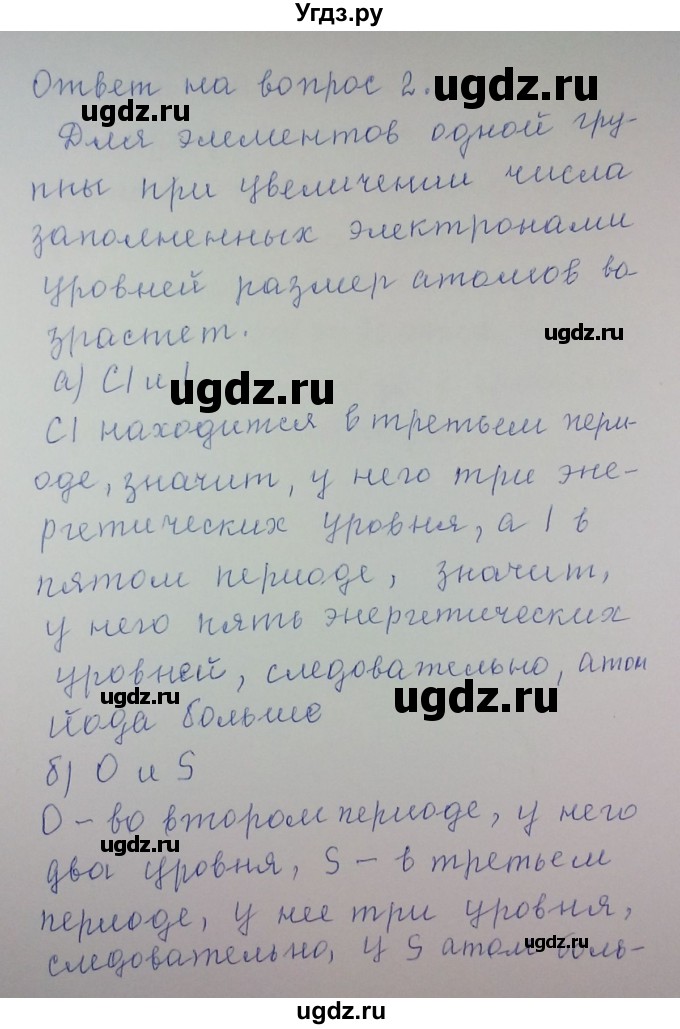 Угдз.ру
Ответ на вопрос 2.
Для элементов одной гру-
ппы при увеличении числа
заполненных электронами
уровней размер атомов во
зрастет.
а) Cl и I
Cl находится в третьем пери-
оде, значит, у него три эне-
ргетических уровня, а I в
пятом периоде, значит,
у него пять энергетических
уровней, следовательно, атом
йода больше
б) O и S
O – во втором периоде, у него
два уровня, S – в третьем
периоде, у нее три уровня,
следовательно, у S атом боль-
ugdz.ru
ugdz.ru
ugdz.ru
ugdz.ru
ugdz.ru
ugdz.ru
ugdz.ru
ugdz.ru
ugdz.ru